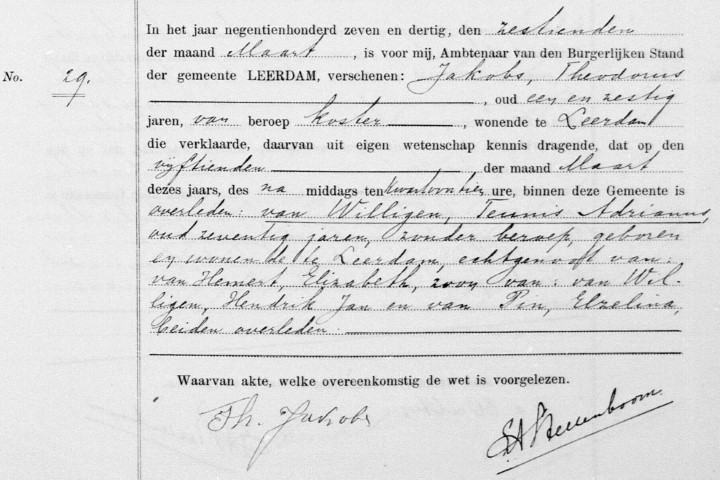 In het jaar negentienhonderd zeven en dertig, den zestienden
der maand Maart, is voor mij, Ambtenaar van den Burgerlijken Stand
No. 29. der gemeente LEERDAM, verschenen: Jakobs, Theodorus
, oud een en zestig
jaren, van beroep koster, wonende te Leerdam
die verklaarde, daarvan uit eigen wetenschap kennis dragende, dat op den
vijftienden der maand Maart
dezes jaars, des na middags ten kwartoontien ure, binnen deze Gemeente is
overleden: van Willigen, Teunis Adrianus,
oud zeventig jaren, zonder beroep, geboren
en wonende te Leerdam, echtgenoot van:
van Hemert, Elizabeth, zoon van: van Wil-
ligen, Hendrik Jan en van Pen, Elzelina,
beiden overleden.
Waarvan akte, welke overeenkomstig de wet is voorgelezen.
Th. Jakobs